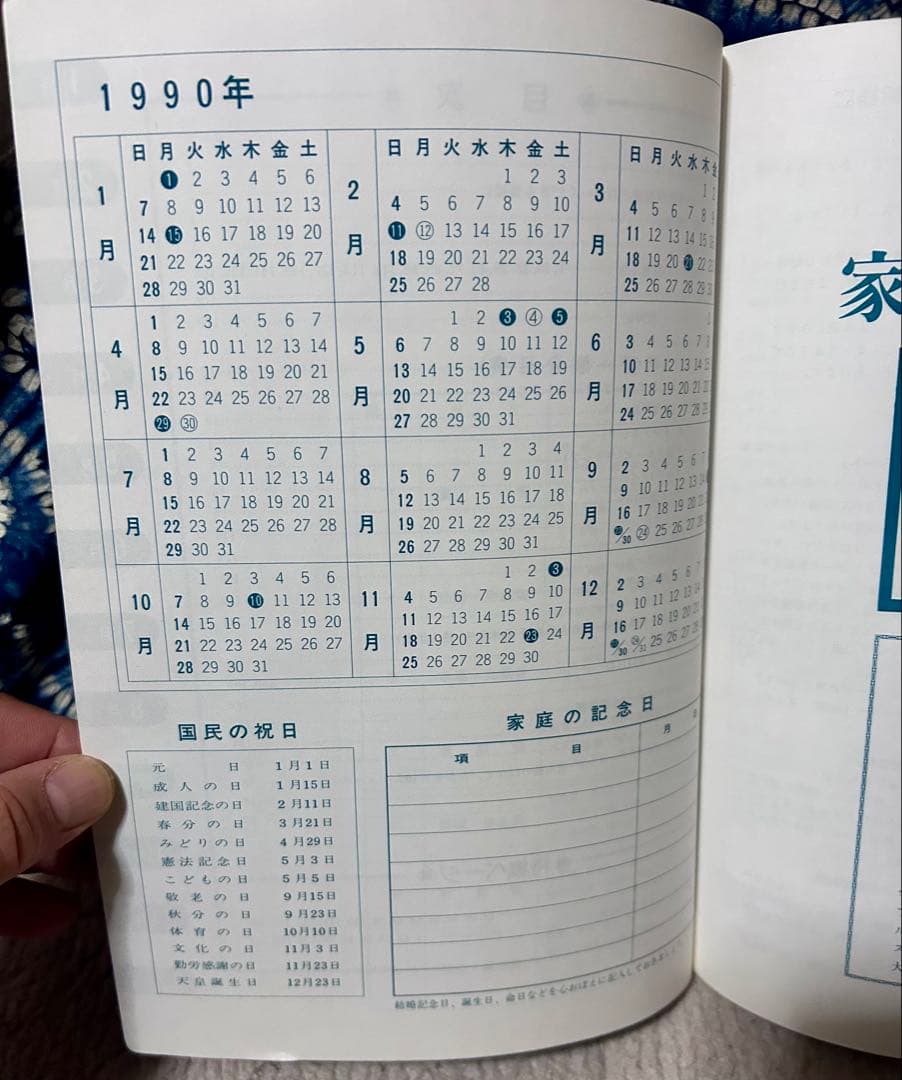 1990年
日 月 火 水 木 金 土
1月
❶ 2 3 4 5 6
7 8 9 10 11 12 13
14 ⓯ 16 17 18 19 20
21 22 23 24 25 26 27
28 29 30 31
日 月 火 水 木 金 土
2月
1 2 3
4 5 6 7 8 9 10
⓫ ⑫ 13 14 15 16 17
18 19 20 21 22 23 24
25 26 27 28
日 月 火 水 木 金
3月
1 2
4 5 6 7 8 9
11 12 13 14 15 16
18 19 20 21 22 23
25 26 27 28 29 30
4月
1 2 3 4 5 6 7
8 9 10 11 12 13 14
15 16 17 18 19 20 21
22 23 24 25 26 27 28
29 ㉚
5月
1 2 ❸ ④ ❺
6 7 8 9 10 11 12
13 14 15 16 17 18 19
20 21 22 23 24 25 26
27 28 29 30 31
6月
1
3 4 5 6 7 8
10 11 12 13 14 15
17 18 19 20 21 22
24 25 26 27 28 29
7月
1 2 3 4 5 6 7
8 9 10 11 12 13 14
15 16 17 18 19 20 21
22 23 24 25 26 27 28
29 30 31
8月
1 2 3 4
5 6 7 8 9 10 11
12 13 14 15 16 17 18
19 20 21 22 23 24 25
26 27 28 29 30 31
9月
2 3 4 5 6 7
9 10 11 12 13 14
16 17 18 19 20 21
23/30 ㉔ 25 26 27 28
10月
1 2 3 4 5 6
7 8 9 ❿ 11 12 13
14 15 16 17 18 19 20
21 22 23 24 25 26 27
28 29 30 31
11月
1 2 ❸
4 5 6 7 8 9 10
11 12 13 14 15 16 17
18 19 20 21 22 23 24
25 26 27 28 29 30
12月
2 3 4 5 6 7
9 10 11 12 13 14
16 17 18 19 20 21
23/30 24/31 25 26 27 28
国民の祝日
元日 1月1日
成人の日 1月15日
建国記念の日 2月11日
春分の日 3月21日
みどりの日 4月29日
憲法記念日 5月3日
こどもの日 5月5日
敬老の日 9月15日
秋分の日 9月23日
体育の日 10月10日
文化の日 11月3日
勤労感謝の日 11月23日
天皇誕生日 12月23日
家庭の記念日
項目 月 日
結婚記念日、誕生日、命日などを心おぼえに記入しておきましょう
家